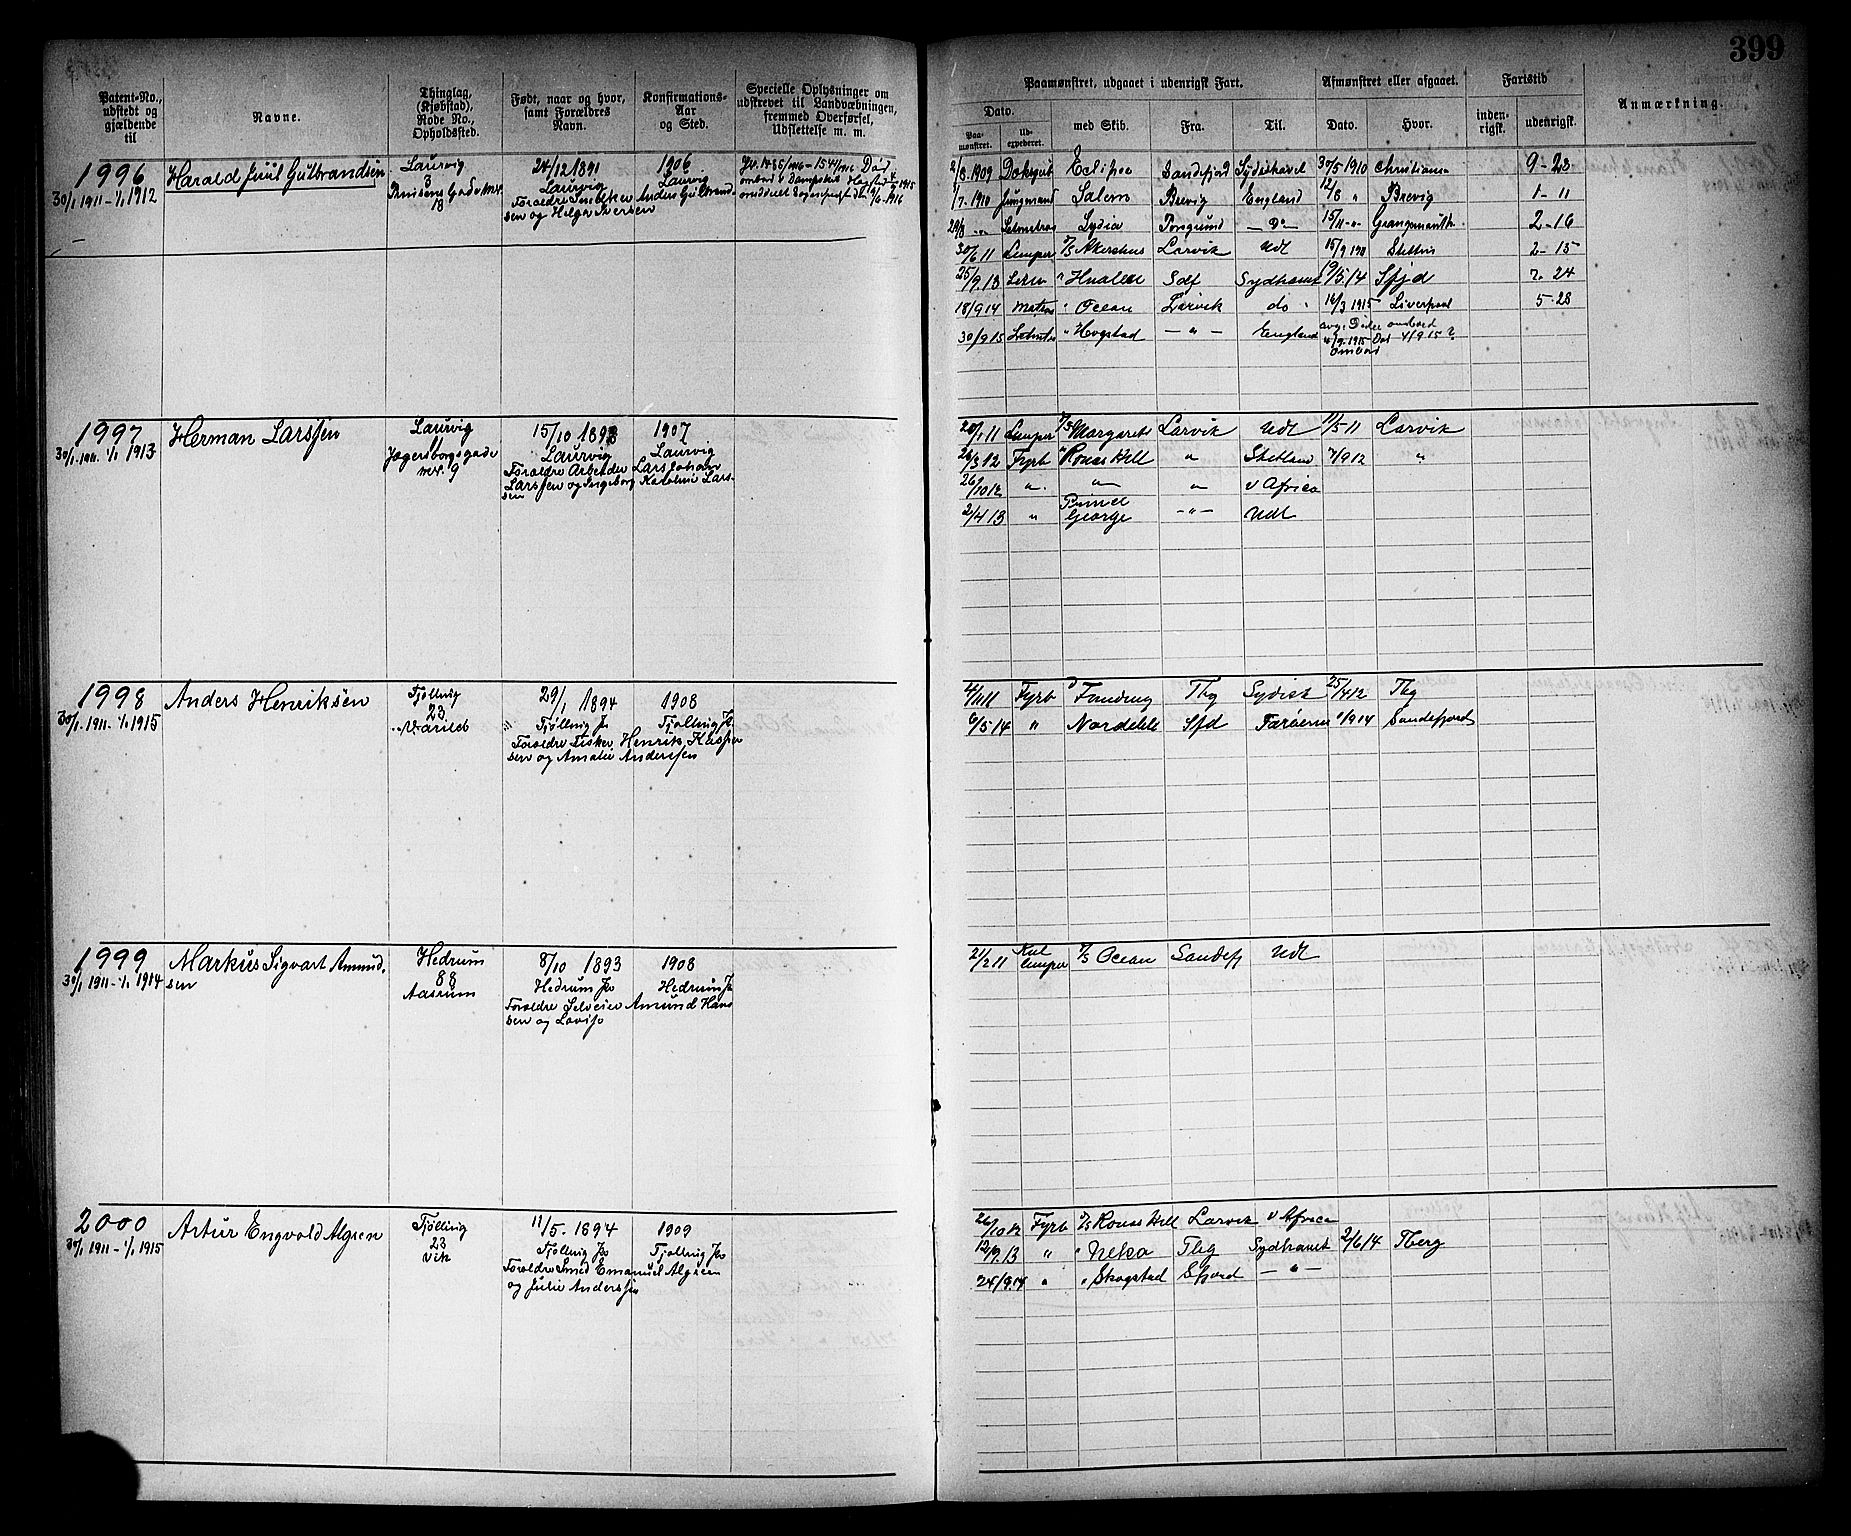 399
Patent-No., udstedt og gjældende til
Navne.
Thinglag, (Kjøbstad), Rode No., Opholdssted.
Født, naar og hvor, samt Forældres Navn.
Konfirmations-Aar og Sted.
Specielle Oplysninger om udskrevet til Landværbningen, fremmed Overførsel, Udslettelse m. m.
Paamønstret, udgaaet i udenrigsk Fart.
Dato.
Paa-mønstret.
Ud-expederet.
med Skib.
Fra.
Til.
Afmønstret eller afgaaet.
Dato.
Hvor.
Fartstid
inden-rigsk.
udenrigsk.
Anmærkning.
1996
30/1 1911 - 1/1 1912
Harald Juul Gulbrandsen
Laurvig
3
18
24/12 1891
Laurvig
Forældre Snedker Anders Gulbrand-
sen og Helga Iversen
1906
Laurvig
2/8 1909 Eclipse Sandefjord Sydishavet 30/5 1910 Christiania 9-28
1/7 1910 Jungmand Salem Brevig England 12/8 " Brevig 1-11
Lydia Porsgrund - Do - 15/11 2-16
30/6 11 Lemper D/S Akershus Larvik Udl 15/9 Stettin 2-15
25/9 13 " Hvalen Sdf Sydhavet 19/5 14 Sfjd 7-24
18/9 14 Matros " Ocean Larvik do 16/3 1915 Liverpool 5-28
30/9 15 - " - England 4/9 1915 Død 4/9 15?
ombord
1997
30/1 1911 - 1/1 1913
Herman Larssen
Laurvig
Jegersborgsgade
nr. 9
15/10 1893
Laurvig
Forældre Arbeider Lars Johan
Larssen og Ingeborg Karoline Lars-
sen
1907
Laurvig
20/1 11 Lemper D/S Margareth Larvik Udl 11/5 11 Larvik
26/3 12 Fyrb " Ronas Hill " Shetland 7/9 12 "
26/10 12 " " " v Africa
2/4 13 " George - " - Udl
1998
30/1 1911 - 1/1 1915
Anders Henriksen
Tjølling
23
29/1 1894
Tjølling Ps
Forældre Fisker Henrik Kasper
sen og Amalie Anderssen
1908
Tjølling Ps
4/1 11 Fyrb Tbg Sydisk 25/4 12 Tbg
6/5 14 " Sfd Færøerne 1/9 14 Sandefjord
1999
30/1 1911 - 1/1 1914
Markus Sigvart Amund-
sen
Hedrum
88
Aasrum
8/10 1893
Hedrum Ps
Forældre Selveier Amund Han
sen og Lovise
1908
Hedrum Ps
2/2 11 Kul
lemper D/S Ocean Sandefj Udl
2000
30/1 1911 - 1/1 1915
Artur Engvold Algren
Tjølling
23
Vik
11/5 1894
Tjølling Ps
Forældre Smed Emanuel Algren
og Julie Anderssen
1909
Tjølling Ps
26/10 12 Fyrb D/S Ronas Hill Larvik v Africa
12/9 13 " " Neka Tbg Sydhavet 2/6 14 Tberg
24/9 14 " " Skogstad Sfjord - " -